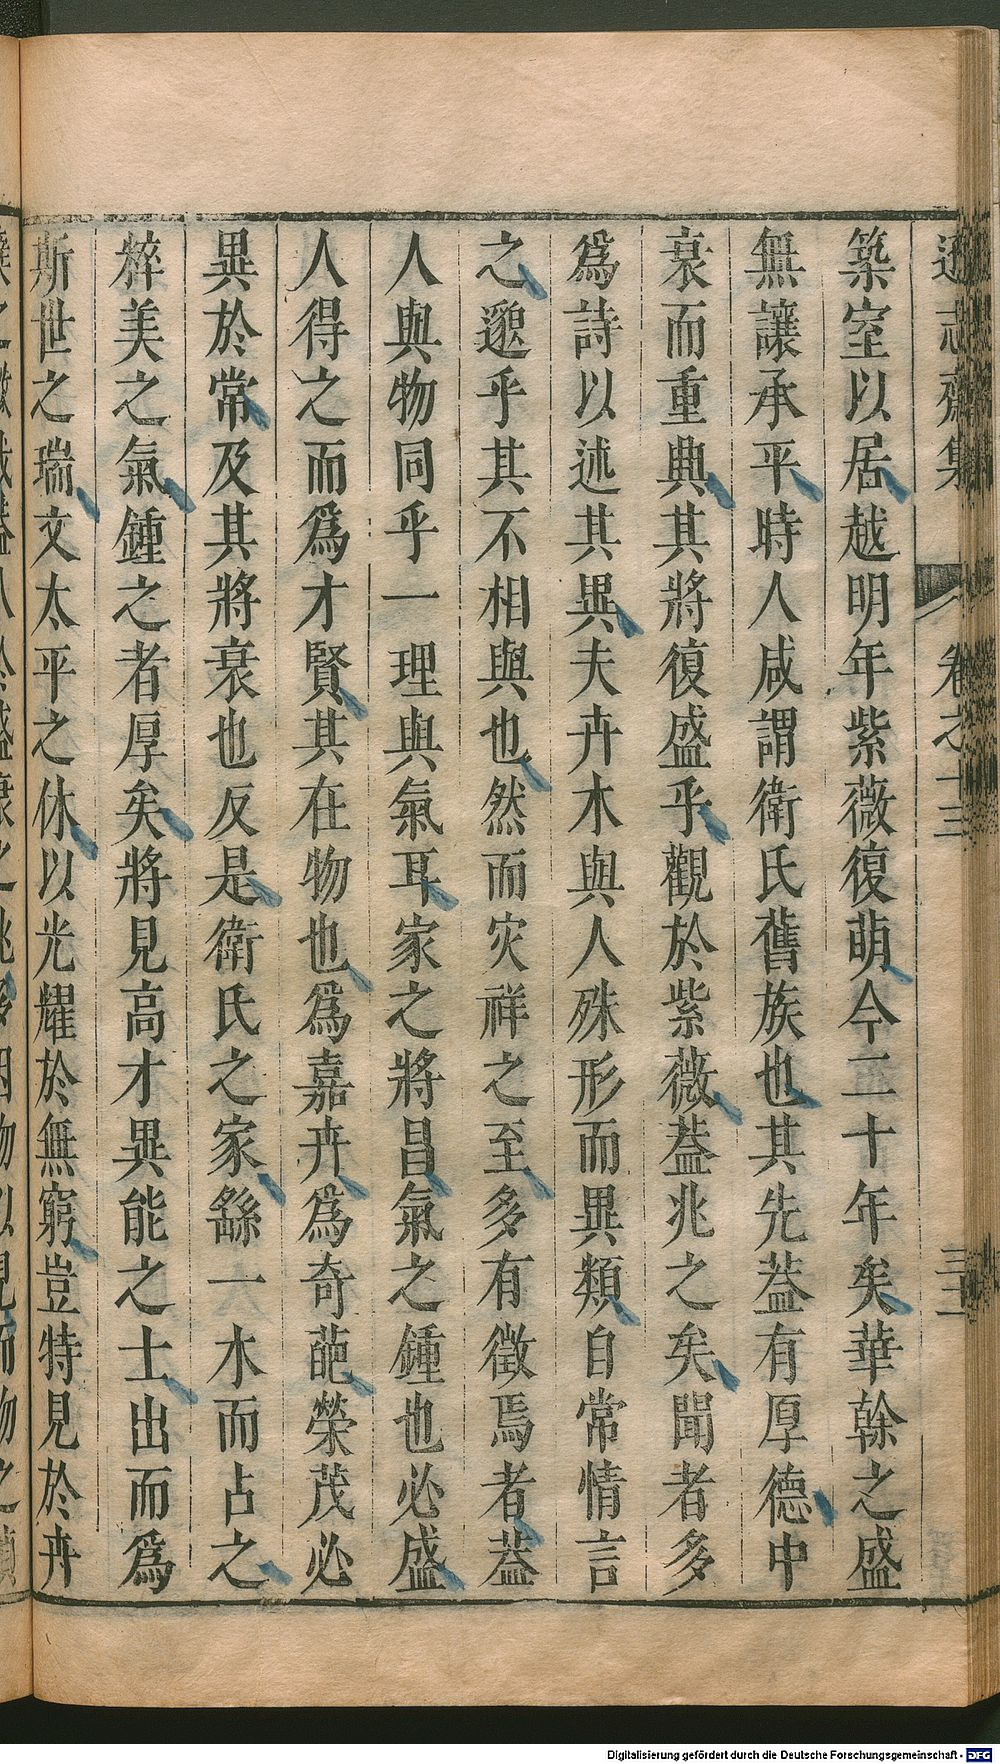 遜志齋集 卷之十三 三
築室以居越明年紫薇復萌今二十年矣華榦之盛
無讓承平時人咸謂衛氏舊族也其先葢有厚德中
衰而重典其將復盛乎觀於紫薇葢兆之矣聞者多
爲詩以述其異夫卉木與人殊形而異類自常情言
之邈乎其不相與也然而灾祥之至多有徵焉者葢
人與物同乎一理與氣耳家之將昌氣之鍾也必盛
人得之而爲才賢其在物也爲嘉卉爲奇葩榮茂必
異於常及其將衰也反是衛氏之家繇一木而占之
粹美之氣鍾之者厚矣將見高才異能之士出而爲
斯世之瑞文太平之休以光耀於無窮豈特見於卉
Digitalisierung gefördert durch die Deutsche Forschungsgemeinschaft - DFG